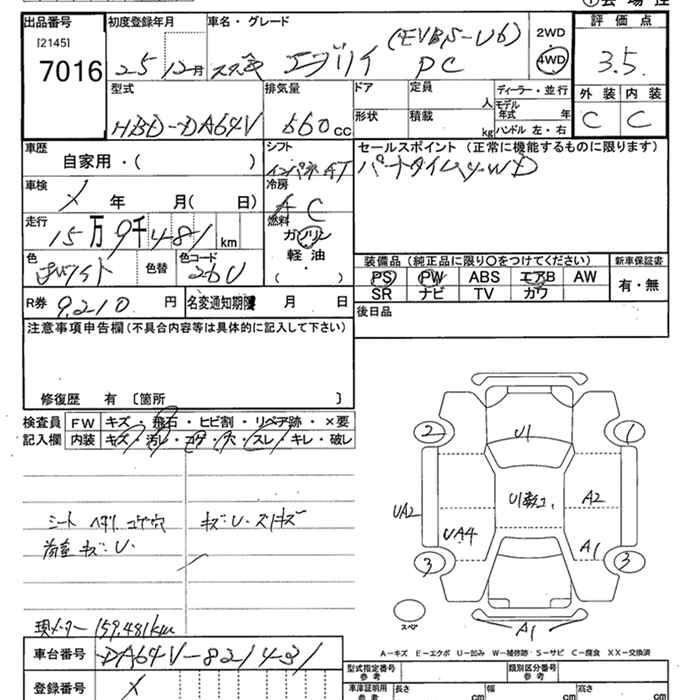 出品番号 初度登録年月 車名・グレード (EVBS-U6) 2WD 評価点
[2145] 7016 25 12月 スズキ エブリイ PC 4WD 3.5
型式 排気量 ドア 定員 人 ディーラー・並行 外装 内装
HBD-DA64V 660cc 形状 積載 kg モデル年式 年 ハンドル 左・右 C C
車歴 シフト セールスポイント (正常に機能するものに限ります)
自家用・( ) インパネAT パートタイム4WD
車検 冷房
年 月( 日) AC
走行 燃料
15万9千481km ガソリン
軽油
( )
色 色替 色コード 26U
装備品 (純正品に限り○をつけてください) 新車保証書
PS PW ABS エアB AW 有・無
SR ナビ TV カワ
R券 9,210円 名変通知期限 月 日 後日品
注意事項申告欄(不具合内容等は具体的に記入して下さい)
修復歴 有 〔箇所 〕
検査員 FW キズ・飛石・ヒビ割・リペア跡・×要
記入欄 内装 キズ・汚レ・コゲ・穴・スレ・キレ・破レ
シート ヘタリ コゲ穴 キズ・U・スリキズ
荷室 キズ・U・
U1
2 1
UA2 A2
UA4 A1
3 3
スペア
A1
現メーター 159,481km
A-キズ E-エクボ U-凹み W-補修跡・S-サビ C-腐食 XX-交換済
車台番号 DA64V-821431
登録番号
型式指定番号 参考 類別区分番号 参考
車庫証明用 参考 長さ cm 幅 cm 高さ cm